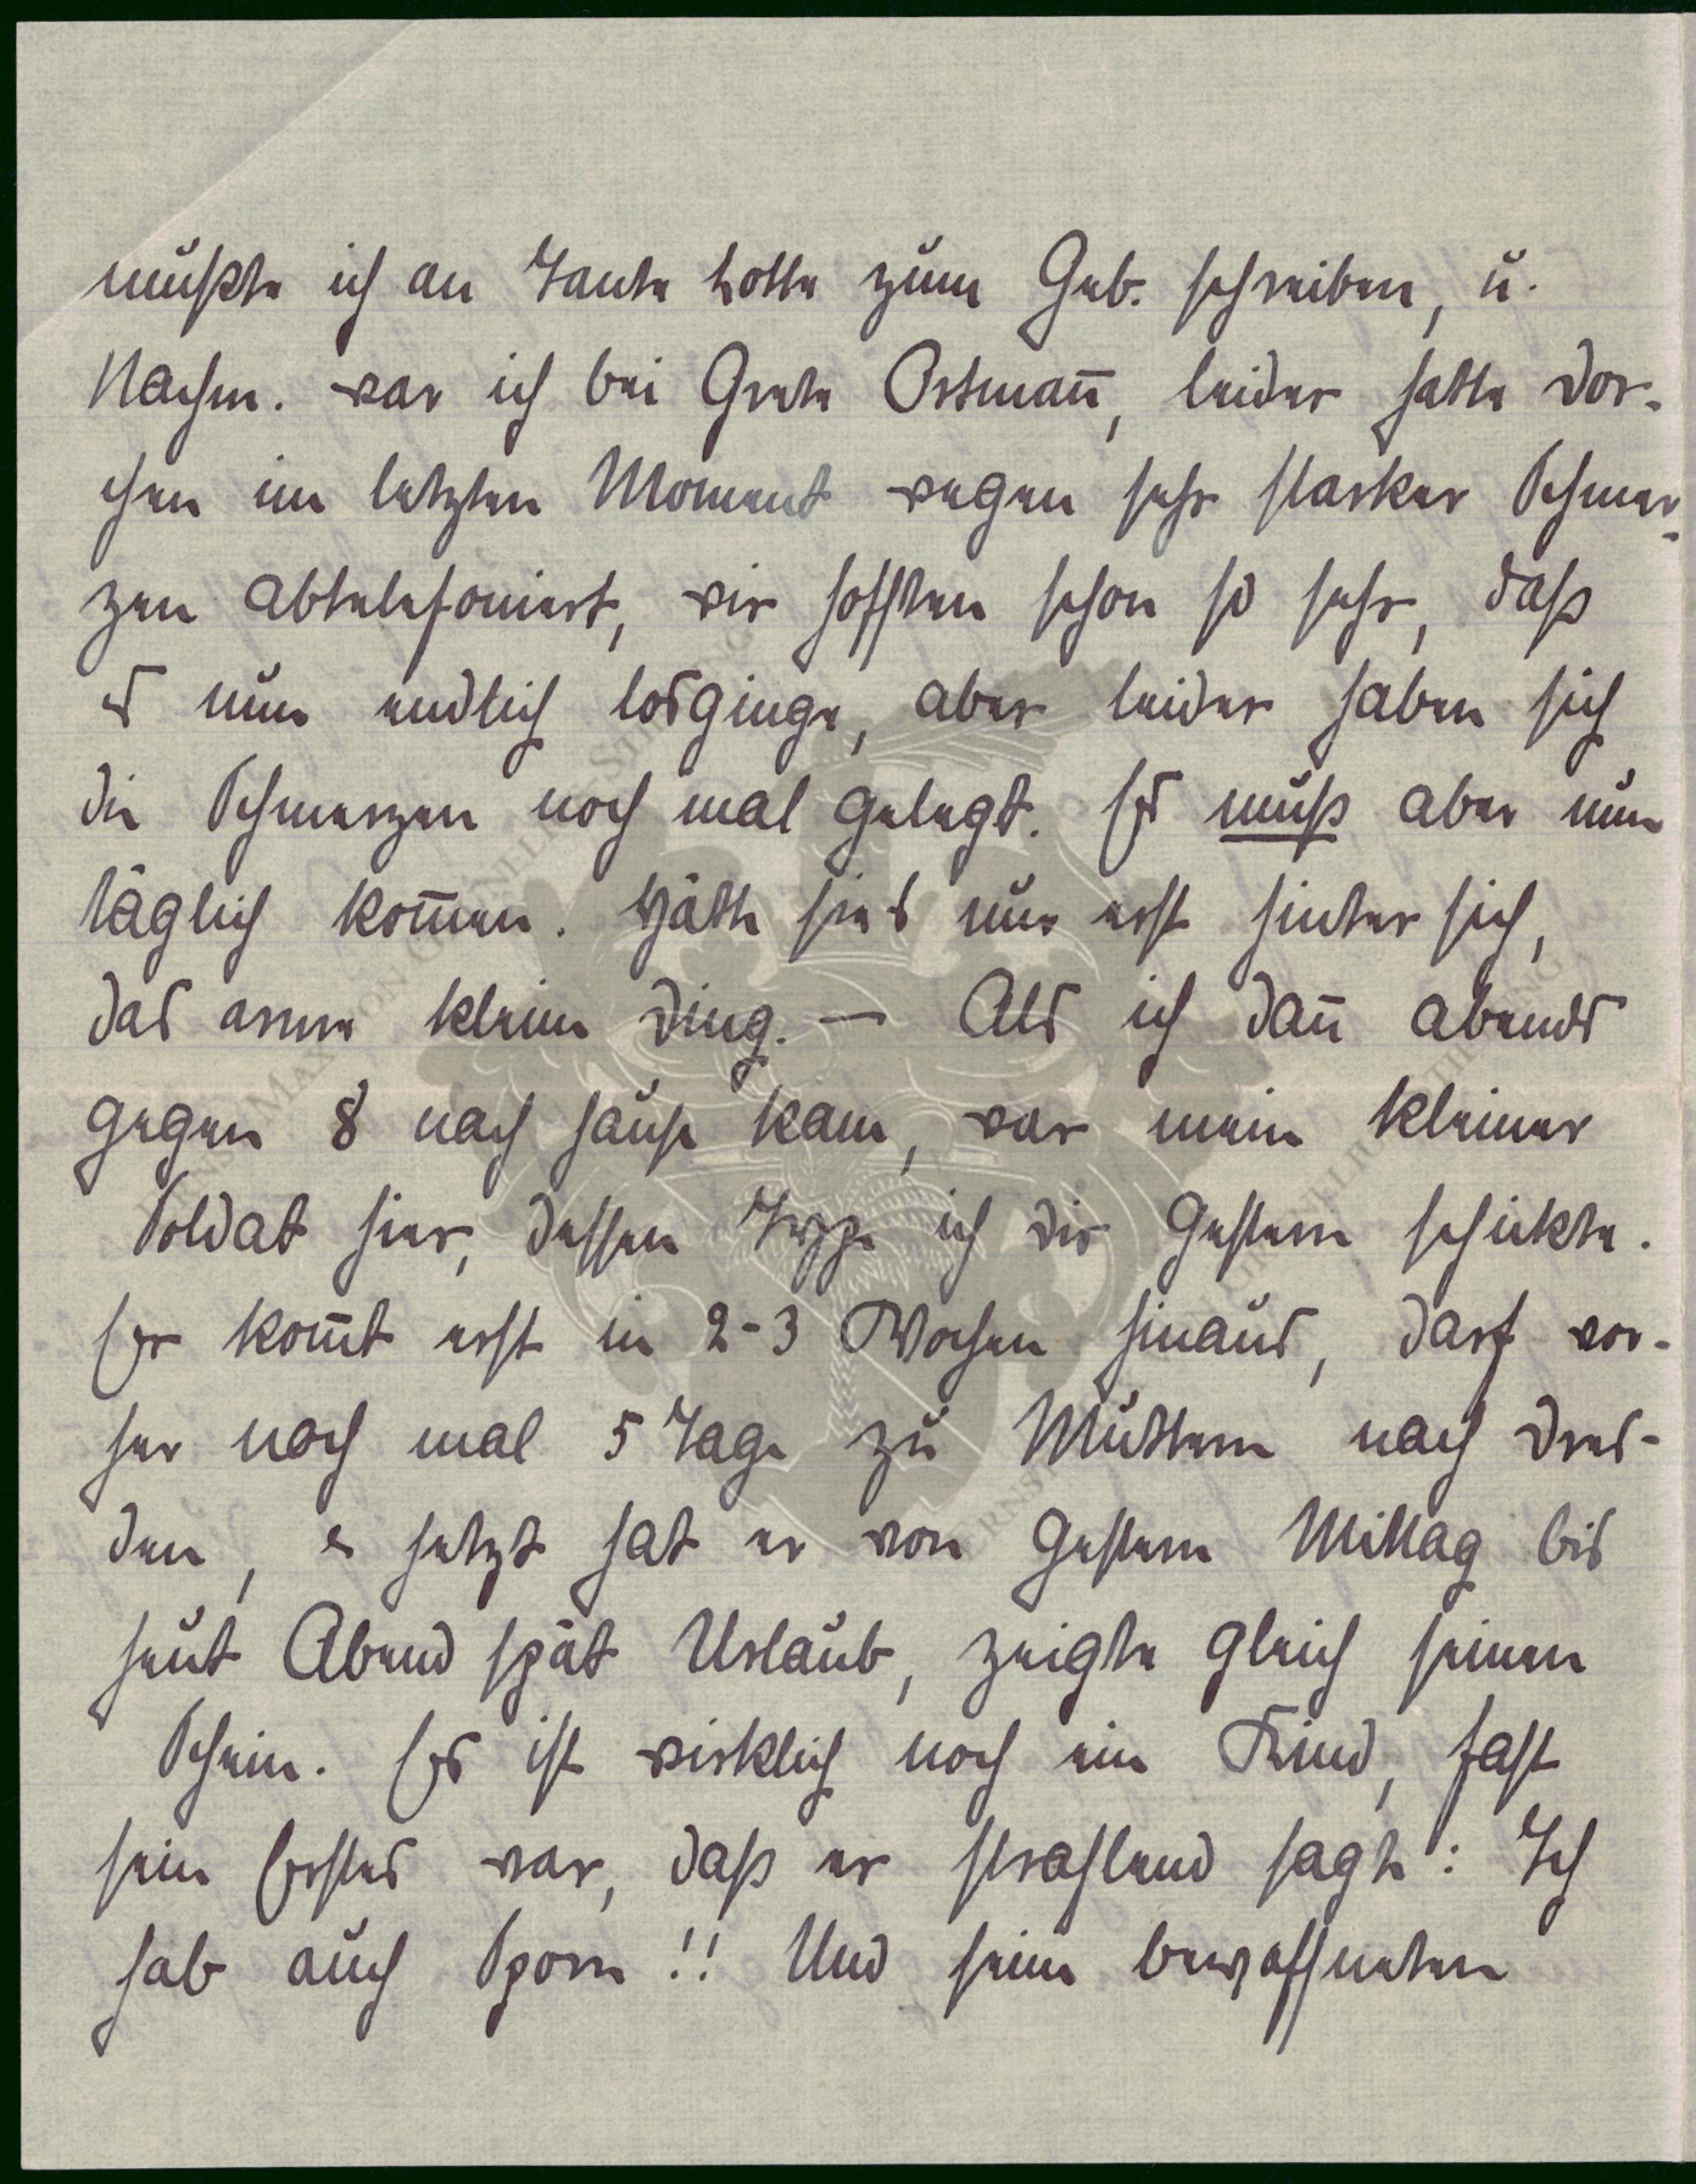 mußte ich an Tante Lotte zum Geb. schreiben, u.
Nachm. war ich bei Grete Ostmañ, leider hatte Dor-
chen im letzten Moment wegen sehr starker Schmer-
zen abtelefoniert, wir hofften schon so sehr, daß
es nun endlich losginge, aber leider haben sich
die Schmerzen noch mal gelegt. Es muß aber nun
täglich kom̄en. Hätte sie's nur erst hinter sich,
das arme kleine Ding. — Als ich dañ abends
gegen 8 nach hause kam, war mein kleiner
Soldat hier, dessen Type ich Dir gestern schickte.
Er kom̄t erst in 2-3 Wochen hinaus, darf vor-
her noch mal 5 Tage zu Muttern nach Dres-
den, & jetzt hat er von gestern Mittag bis
heut Abend spät Urlaub, zeigte gleich seinen
Schein. Es ist wirklich noch ein Kind, fast
sein Erstes war, daß er strahlend sagte: Ich
hab auch Sporn!! Und seine bewaffneten